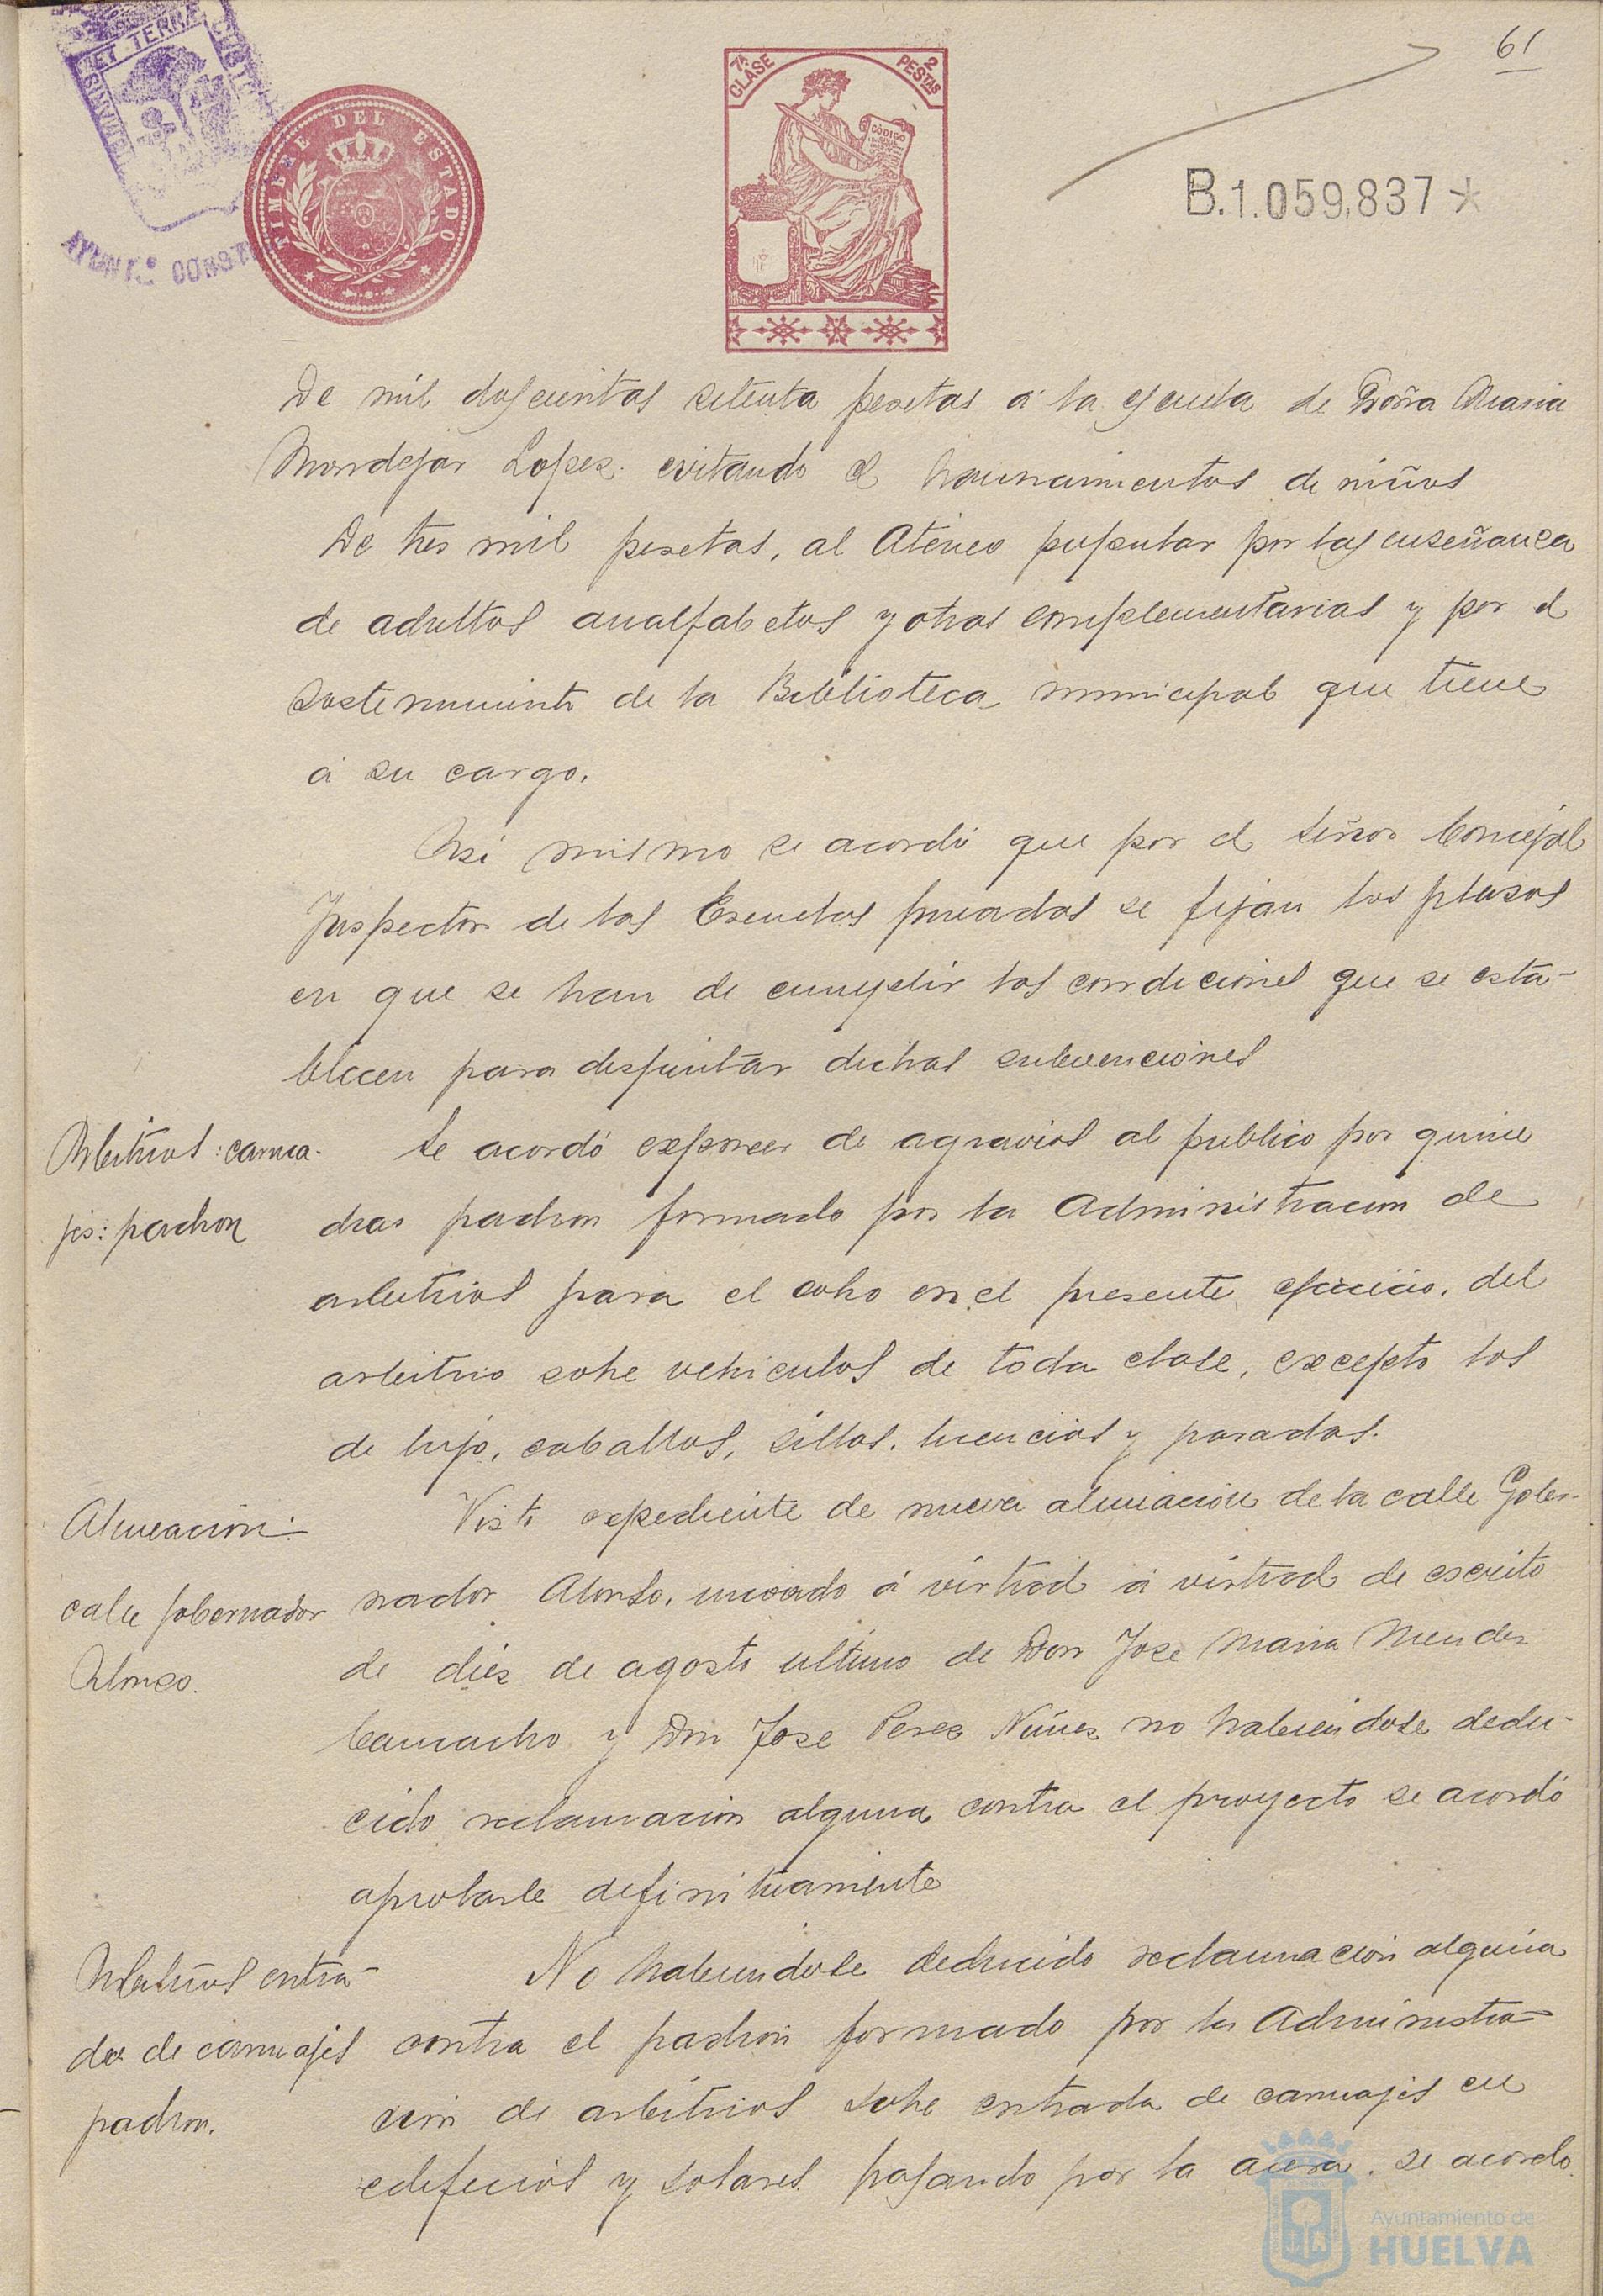 61
PORTUS MARIS ET TERRAE CUSTODIA
AYUNT.º CONST
TIMBRE DEL ESTADO
7ª CLASE
2 PESTAS
CÓDIGO
B.1.059,837*
De mil doscientas setenta pesetas á la escuela de Doña Maria
Mondejar Lopez. evitando el hacinamientos de niños
De tres mil pesetas, al Ateneo popular por las enseñanza
de adultos analfabetos y otras complementarias y por el
sostenimiento de la Biblioteca municipal que tiene
á su cargo.
Asi mismo se acordó que por el Señor Concejal
Inspector de las Escuelas privadas se fijan los plazos
en que se han de cumplir las condiciones que se esta-
blecen para disfrutar dichas subvenciones
Arbitrios: carrua-
jes: padron
Se acordó exponer de agravios al publico por quince
dias padron formado por la Administracion de
arbitrios para el cobro en el presente ejercicio, del
arbitrio sobre vehiculos de toda clase, excepto los
de lujo, caballos, sillas, licencias y paradas.
Alineación:
calle Gobernador
Alonso.
Visto expediente de nueva alineación de la calle Gober-
nador Alonso, incoado á virtud á virtud de escrito
de diez de agosto ultimo de Don Jose Maria Mendez
Camacho y Don Jose Perez Nuñez no habiendose dedu-
cido reclamación alguna contra el proyecto se acordó
aprobarle definitivamente
Arbitrios entra-
da de carruajes
padron.
No habiendose deducido reclamación alguna
contra el padron formado por la Administra-
cion de arbitrios sobre entrada de carruajes en
edificios y solares pasando por la acera. se acordo
Ayuntamiento de
HUELVA